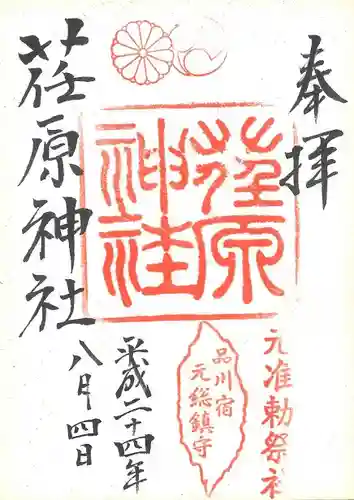 奉拝
元准勅祭社
荏原神社
品川宿
元総鎮守
平成二十四年
八月四日
荏原神社